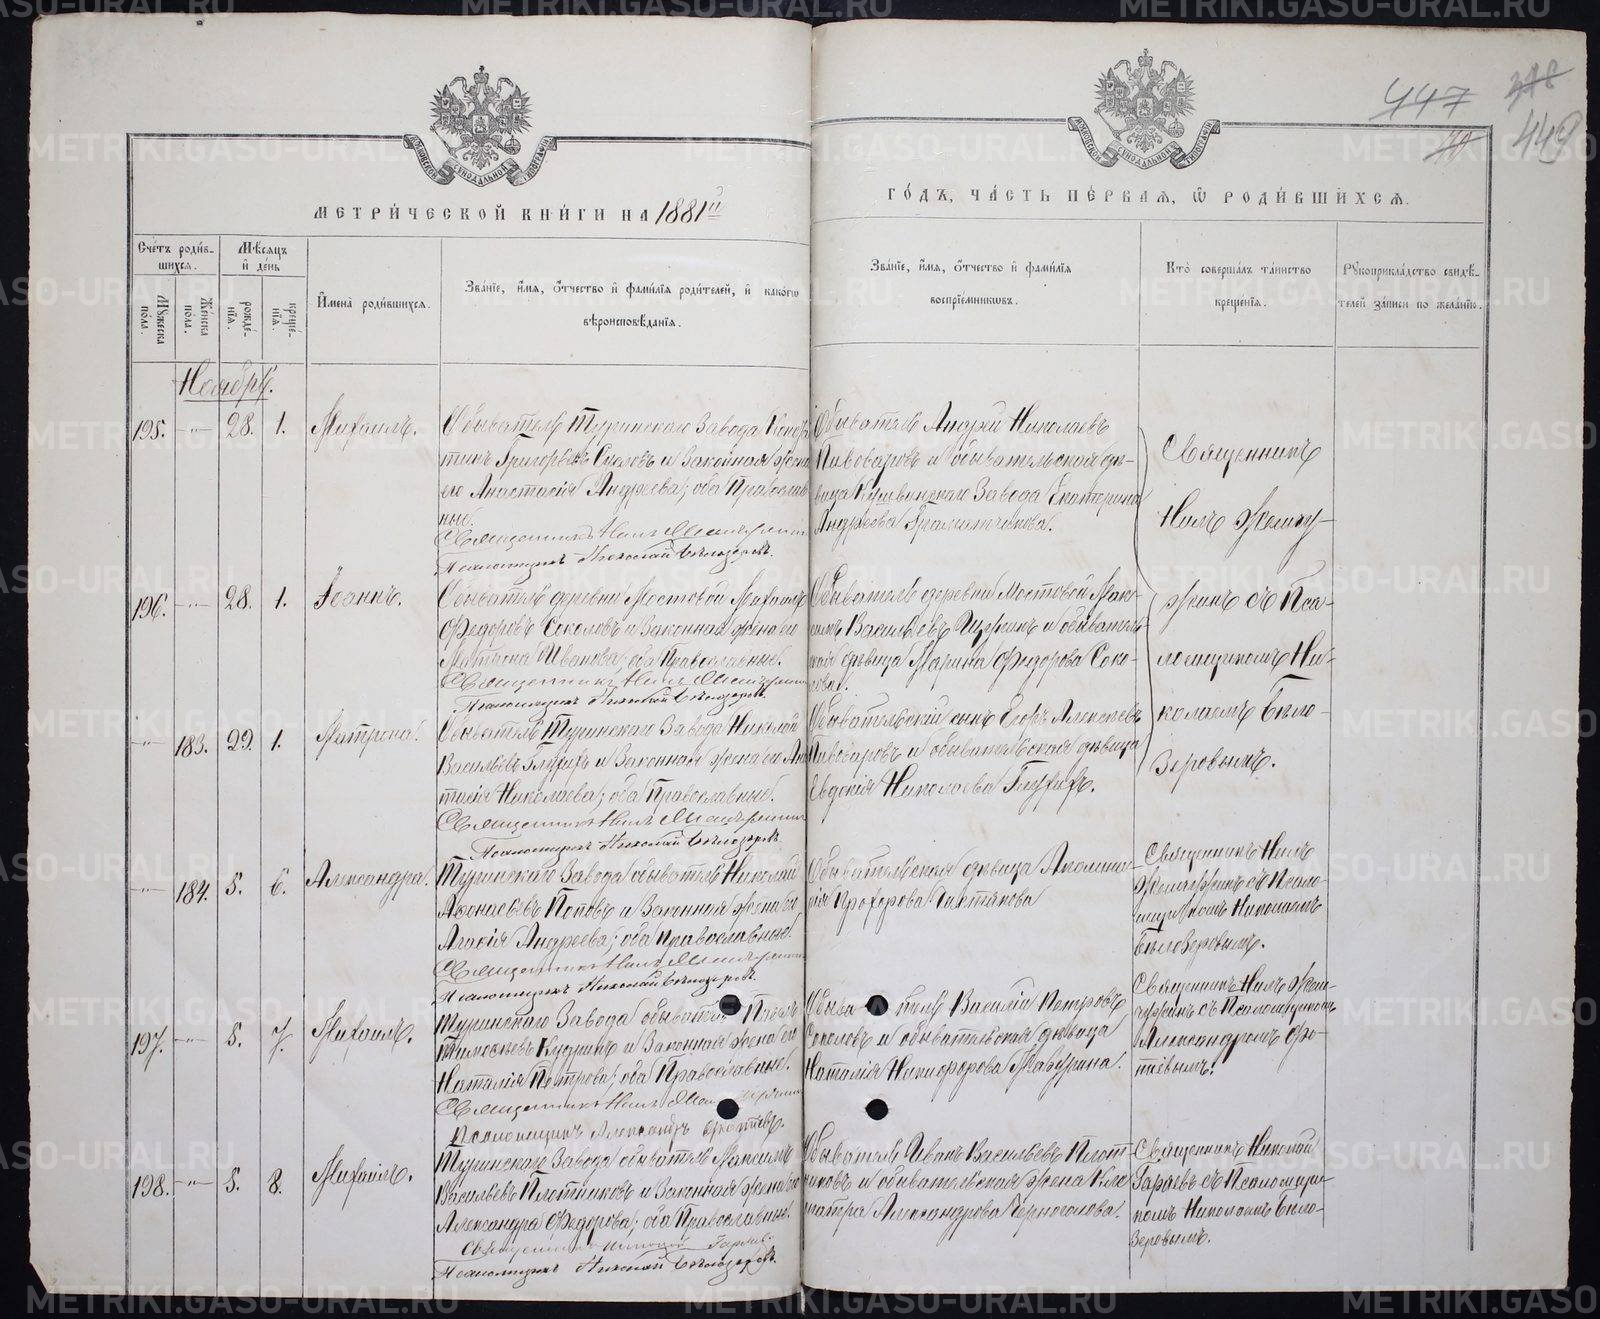 447
378
449
МЕТРИ́ЧЕСКОЙ КНИ́ГИ НА 1881й
ГО́ДЪ, ЧА́СТЬ ПЕ́РВАЯ, Ѡ РОДИ́ВШИХСЯ.
Сче́тъ роди́в-
шихся.
Мѣ́сяцъ
и҆ де́нь
Мꙋ́жеска пола.
Же́нска пола.
рожде́-
нїя.
креще́-
нїя.
И҆мена̀ роди́вшихся.
Зва́нїе, и҆́мя, ѻ҆́тчество и҆ фами́лїя роди́телей, и҆ како́гѡ
вѣроисповѣ́данїя.
Зва́нїе, и҆́мя, ѻ҆́тчество и҆ фами́лїя
воспрїе́мникѡвъ.
Кто̀ соверша́лъ та́инство
креще́нїя.
Рꙋкоприкла́дство свидѣ́-
телей за́писи по жела́нїю.
Ноябрь.
195. —"— 28. 1. Михаилъ.
Обыватель Туринскаго Завода
тинъ Григорьевъ и законная жена
его Анастасія Андреева; оба Православ
ные.
Священникъ Нилъ
Псаломщикъ Николай Бѣлозеровъ.
Обыватель Андрей Николаевъ
Пивоваровъ и обывательская дѣ-
вица Кушвинскаго Завода Екатерина
Андреева
Священникъ
Нилъ
196. —"— 28. 1. Іоаннъ.
Обыватель деревни Мостовой Михаилъ
Федоровъ Соколовъ и законная жена его
Матрона Иванова; оба Православные.
Священникъ Нилъ
Псаломщикъ Николай Бѣлозеровъ.
Обыватель деревни Мостовой Мак-
симъ Васильевъ и обыватель
ская дѣвица Марина Федорова Соко-
лова.
съ Пса-
ломщикомъ Ни-
—"— 183. 29. 1. Матрона.
Обыватель Туринскаго Завода Николай
Васильевъ Глухихъ и законная жена его Ана
тасія Николаева; оба Православные.
Священникъ Нилъ
Псаломщикъ Николай Бѣлозеровъ.
Обывательскій сынъ Егоръ Алексѣевъ
Пивоваровъ и обывательская дѣвица
Евдокія Николаева Глухихъ.
колаемъ Бѣло-
зеровымъ.
—"— 184. 5. 6. Александра.
Туринскаго Завода обыватель Николай
Афонасьевъ Поповъ и законная жена его
Агафія Андреева; оба Православные.
Священникъ Нилъ
Псаломщикъ Николай Бѣлозеровъ.
Обывательская дѣвица Аполина-
рія Прохорова
Священникъ Нилъ
съ Псало-
мщикомъ Николаемъ
Бѣлозеровымъ.
197. —"— 5. 7. Михаилъ.
Туринскаго Завода обыватель Павелъ
Тимофеевъ Кудринъ и законная жена его
Наталія Петрова; оба Православные.
Священникъ Нилъ
Псаломщикъ Александръ Фотіевъ.
Обыватель Василій Петровъ
Соколовъ и обывательская дѣвица
Наталія Никифорова
Священникъ Нилъ
съ Псаломщикомъ
Александромъ Фо-
тіевымъ.
198. —"— 5. 8. Михаилъ.
Туринскаго Завода обыватель Максимъ
Васильевъ Плотниковъ и законная жена его
Александра Федорова; оба Православные.
Священникъ Николай Гаряевъ
Псаломщикъ Николай Бѣлозеровъ.
Обыватель Иванъ Васильевъ Плот-
никовъ и обывательская жена Клео
патра Александрова Черноголова.
Священникъ Николай
Гаряевъ съ Псаломщи-
комъ Николаемъ Бѣло-
зеровымъ.
METRIKI.GASO-URAL.RU